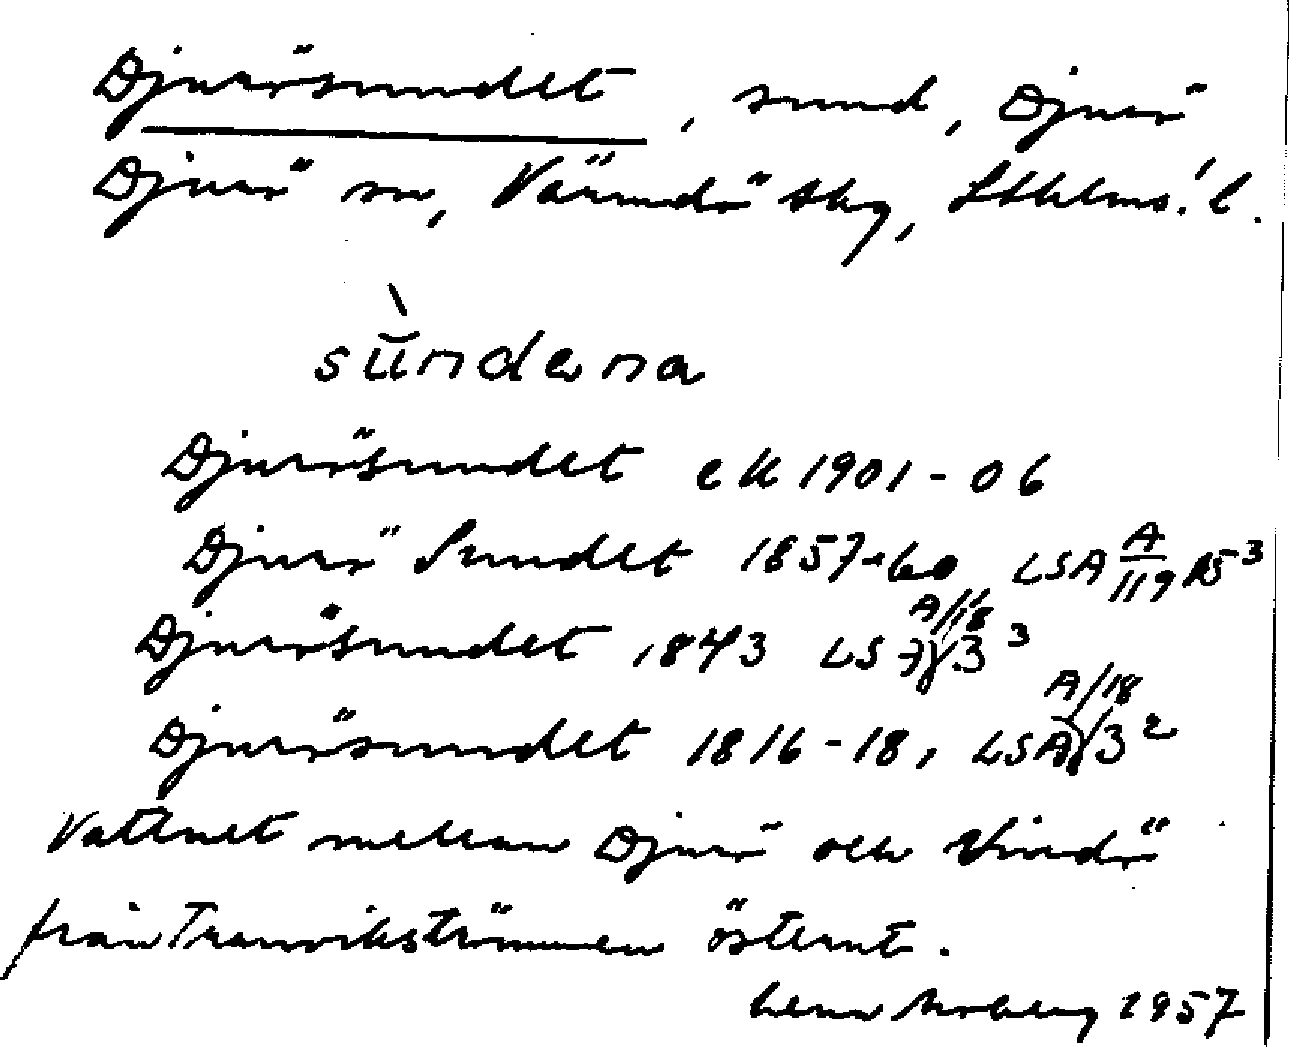 Djurösundet, sund, Djurö
Djurö sn, Värmdö skg, Sthlms l.
sŭ̀ndena
Djurösundet ek 1901-06
Djurö Sundet 1857-60 LSA A/119 15³
Djurösundet 1843 LS A/18 3³
Djurösundet 1816-18, LSA A/18 3²
Vattnet mellan Djurö och Vindö
från Tranvikströmmen österut.
1957